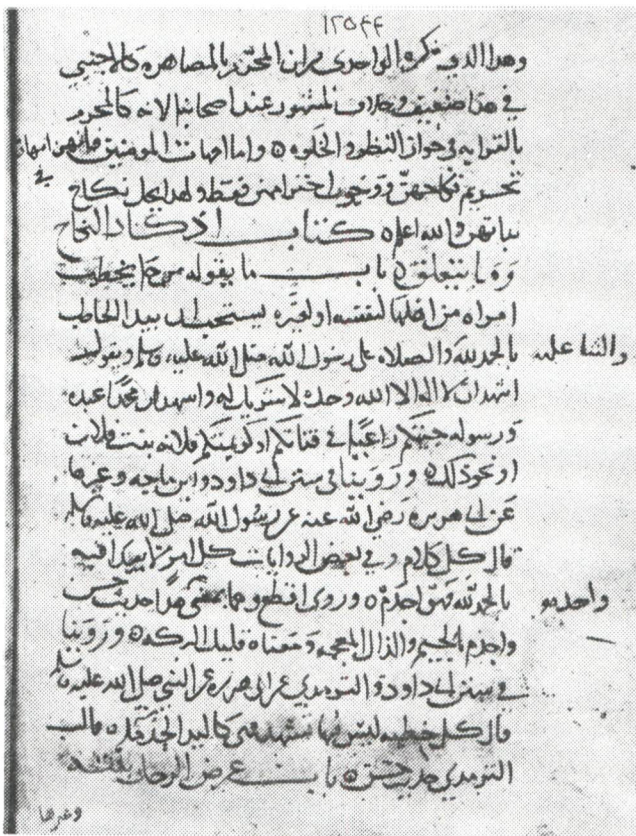 ١٢٥٤٤
وهذا الذي ذكره الواحدي من ان المحرم بالمصاهرة كالاجنبي
في هذا ضعيف وخلاف المشهور عند اصحابنا لانه كالمحرم
بالقرابه في جواز النظر والخلوه ٥ واما امهات المومنين فانهن امهات
في
تحريم نكاحهن ووجوب احترامهن فقط ولهذا يحل نكاح
بناتهن والله اعلم ٥ كتاب اذكار النكاح
وما يتعلق ٥ باب ما يقوله من جا يخطب
امراه من اهلها لنفسه او لغيره يستحب ان يبدا الخاطب
بالحمد لله والصلاه على رسول الله صلى الله عليه وسلم ويقول
والثنا عليه
اشهد ان لا اله الا الله وحده لا شريك له واشهد ان محمدا عبده
ورسوله جيتكم راغبا في فتاتكم او كريمتكم فلانه بنت فلان
او نحو ذلك ٥ وروينا في سنن ابي داود وابن ماجه وغيرها
عن ابي هريره رضي الله عنه عن رسول الله صلى الله عليه وسلم
قال كل كلام وفي بعض الروايات كل امر لا يبدا فيه
بالحمد لله فهو اجذم ٥ وروى اقطع وهما بمعنى هذا حديث حسن
واجذم بالجيم والذال المعجمه ومعناه قليل البركه ٥ وروينا
في سنن ابي داود والترمذي عن ابي هريره عن النبي صلى الله عليه وسلم
قال كل خطبه ليس فيها تشهد فهي كاليد الجذما ٥ قال
الترمذي حديث حسن ٥ باب عرض الرجل بنته
وغيرها